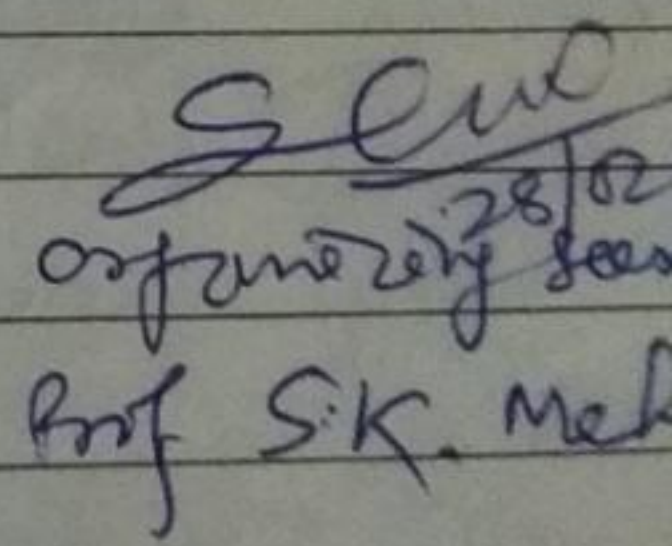 28/02
Organizing Secr
Prof S.K. Meh